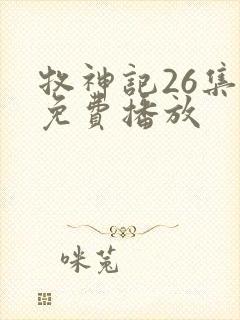 牧神記26集
免費播放
咪兔